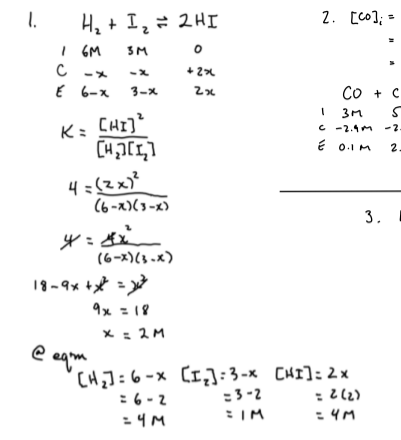 1. H₂ + I₂ ⇌ 2HI
I 6M 3M 0
C -x -x +2x
E 6-x 3-x 2x
K = [HI]² / [H₂][I₂]
4 = (2x)² / (6-x)(3-x)
4 = 4x² / (6-x)(3-x)
18-9x + x² = x²
9x = 18
x = 2M
@ eqm
[H₂] = 6-x [I₂] = 3-x [HI] = 2x
= 6-2 = 3-2 = 2(2)
= 4M = 1M = 4M
2. [CO]ᵢ =
=
=
CO + C
I 3M 5
C -2.9M -2.
E 0.1M 2.
3.